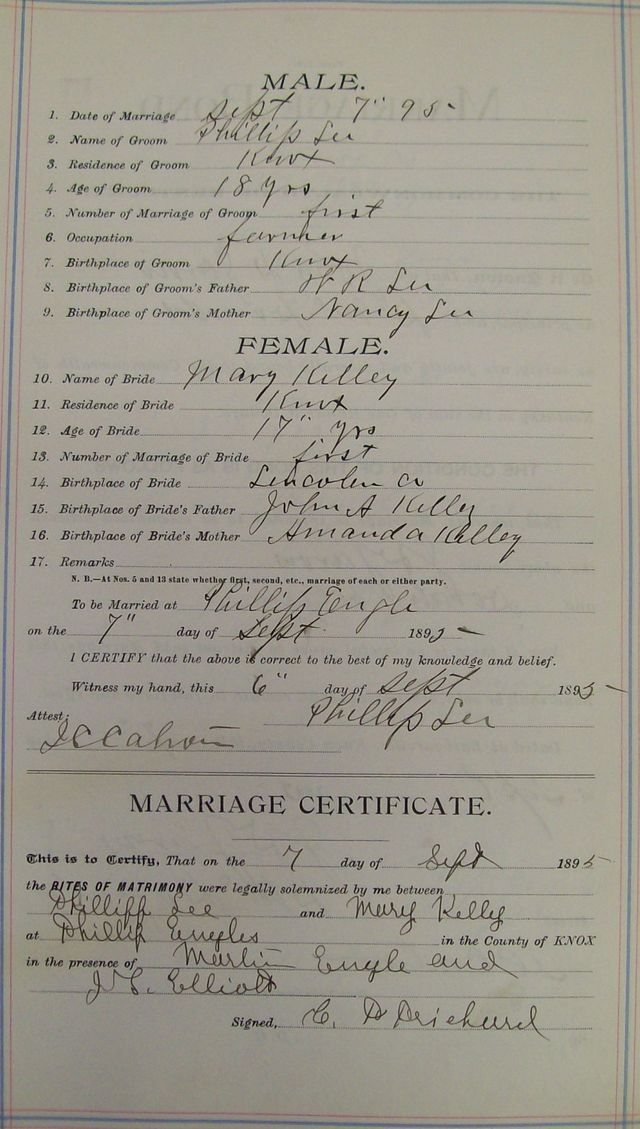 MALE.
1. Date of Marriage Sept 7" 95
2. Name of Groom Phillip Lee
3. Residence of Groom Knox
4. Age of Groom 18 yrs
5. Number of Marriage of Groom first
6. Occupation farmer
7. Birthplace of Groom Knox
8. Birthplace of Groom's Father W R Lee
9. Birthplace of Groom's Mother Nancy Lee
FEMALE.
10. Name of Bride Mary Kelley
11. Residence of Bride Knox
12. Age of Bride 17" yrs
13. Number of Marriage of Bride first
14. Birthplace of Bride
15. Birthplace of Bride's Father John A Kelley
16. Birthplace of Bride's Mother Amanda Kelley
17. Remarks
N. B.—At Nos. 5 and 13 state whether first, second, etc., marriage of each or either party.
To be Married at Phillip Engle
on the 7" day of Sept 1895
I CERTIFY that the above is correct to the best of my knowledge and belief.
Witness my hand, this 6" day of Sept 1895
Phillip Lee
Attest:
MARRIAGE CERTIFICATE.
This is to Certify, That on the 7 day of Sept 1895
the RITES OF MATRIMONY were legally solemnized by me between
Phillipp Lee and Mary Kelly
at Phillip Engles in the County of KNOX
in the presence of Marlin Engle and
Elliott
Signed,